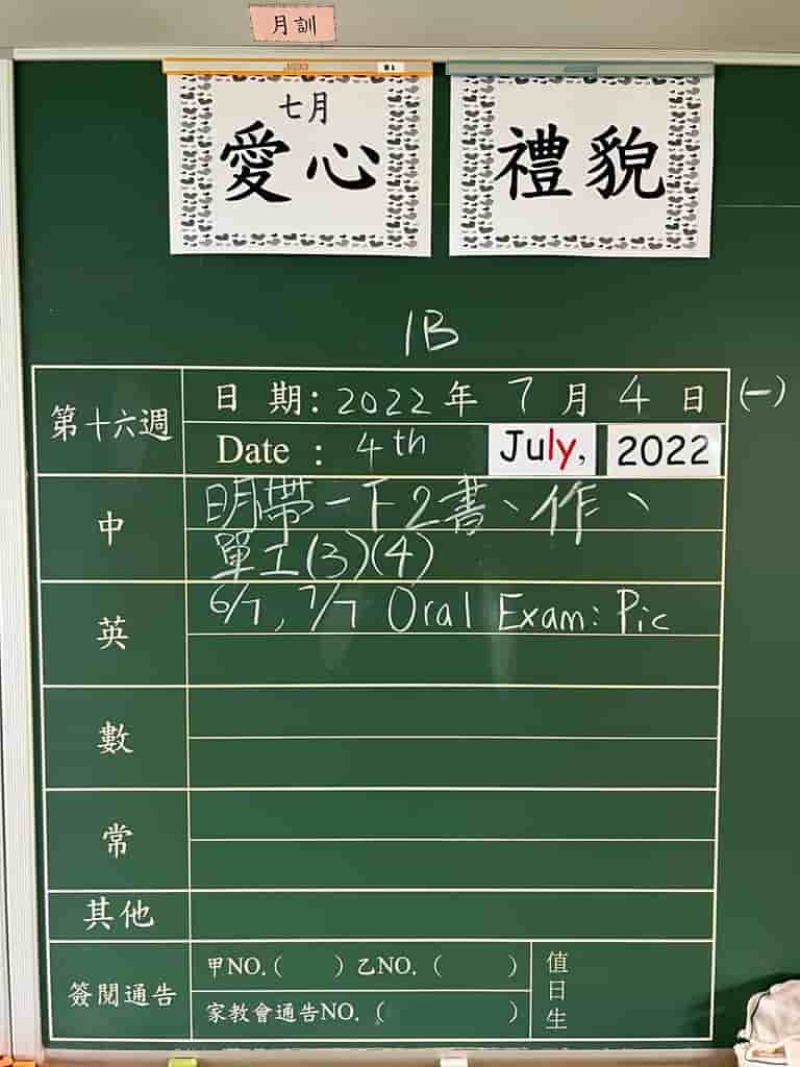 月訓
七月
愛心
禮貌
1B
第十六週
日 期: 2022 年 7 月 4 日 (一)
Date : 4th July, 2022
中
明帶一下2書、作、
單工(3)(4)
英
6/7, 7/7 Oral Exam: Pic
數
常
其他
簽閱通告
甲NO.( ) 乙NO. ( )
家教會通告NO. ( )
值日生